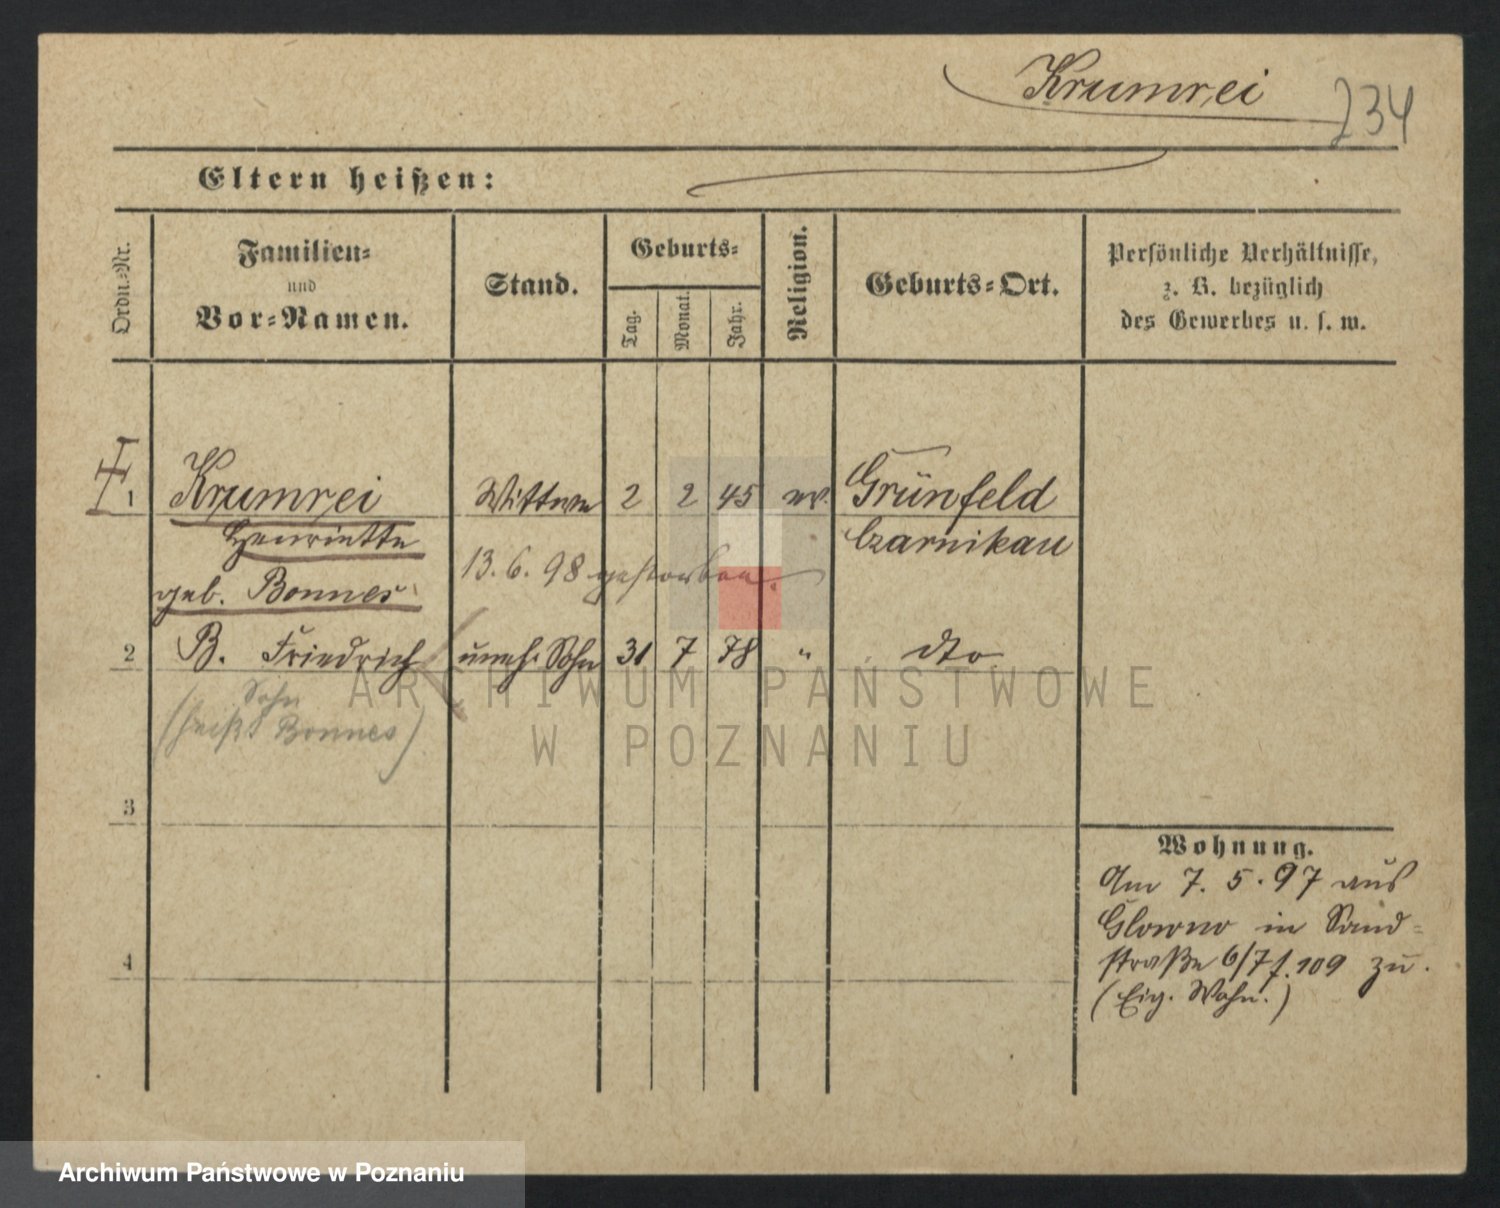 Krumrei 234
Eltern heißen:
Ordn.-Nr.
Familien-
und
Vor-Namen.
Stand.
Geburts-
Tag.
Monat.
Jahr.
Religion.
Geburts-Ort.
Persönliche Verhältnisse,
z. B. bezüglich
des Gewerbes u. s. w.
1 Krumrei Wittwe 2 2 45 ev. Grünfeld
Henriette Czarnikau
geb. Bonnes 13. 6. 98 gestorben.
2 B. Friedrich uneh. Sohn 31 7 78 " dto
Sohn
(heißt Bonnes)
3
4
Wohnung.
Am 7. 5. 97 aus
Glowno in Sand-
straße 6/7 f. 109 zu.
(Eig. Wohn.)
ARCHIWUM PAŃSTWOWE
W POZNANIU
Archiwum Państwowe w Poznaniu